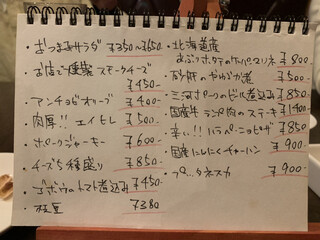 ・おつまみサラダ ¥350〜¥650.
・お店で燻製 スモークチーズ
¥450-
・アンチョビオリーブ ¥400-
・肉厚!! エイヒレ ¥500-
・ポークジャーキー ¥600-
・チーズ5種盛り ¥850-
・ゴボウのトマト煮込み ¥450-
・枝豆 ¥380
・北海道産
あぶりホタテのケイパマリネ ¥800-
・砂肝のやわらか煮 ¥500-
・三河ポークのビール煮込み ¥850
・国産牛 ランプ肉のステーキ ¥1400
・辛い!! ハラペーニョピザ ¥850
・国産にんにくチャーハン ¥900-
・プ タネスカ ¥900-